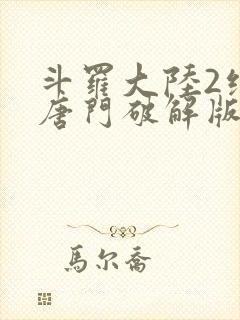 斗羅大陸2
唐門破解版
馬尔喬